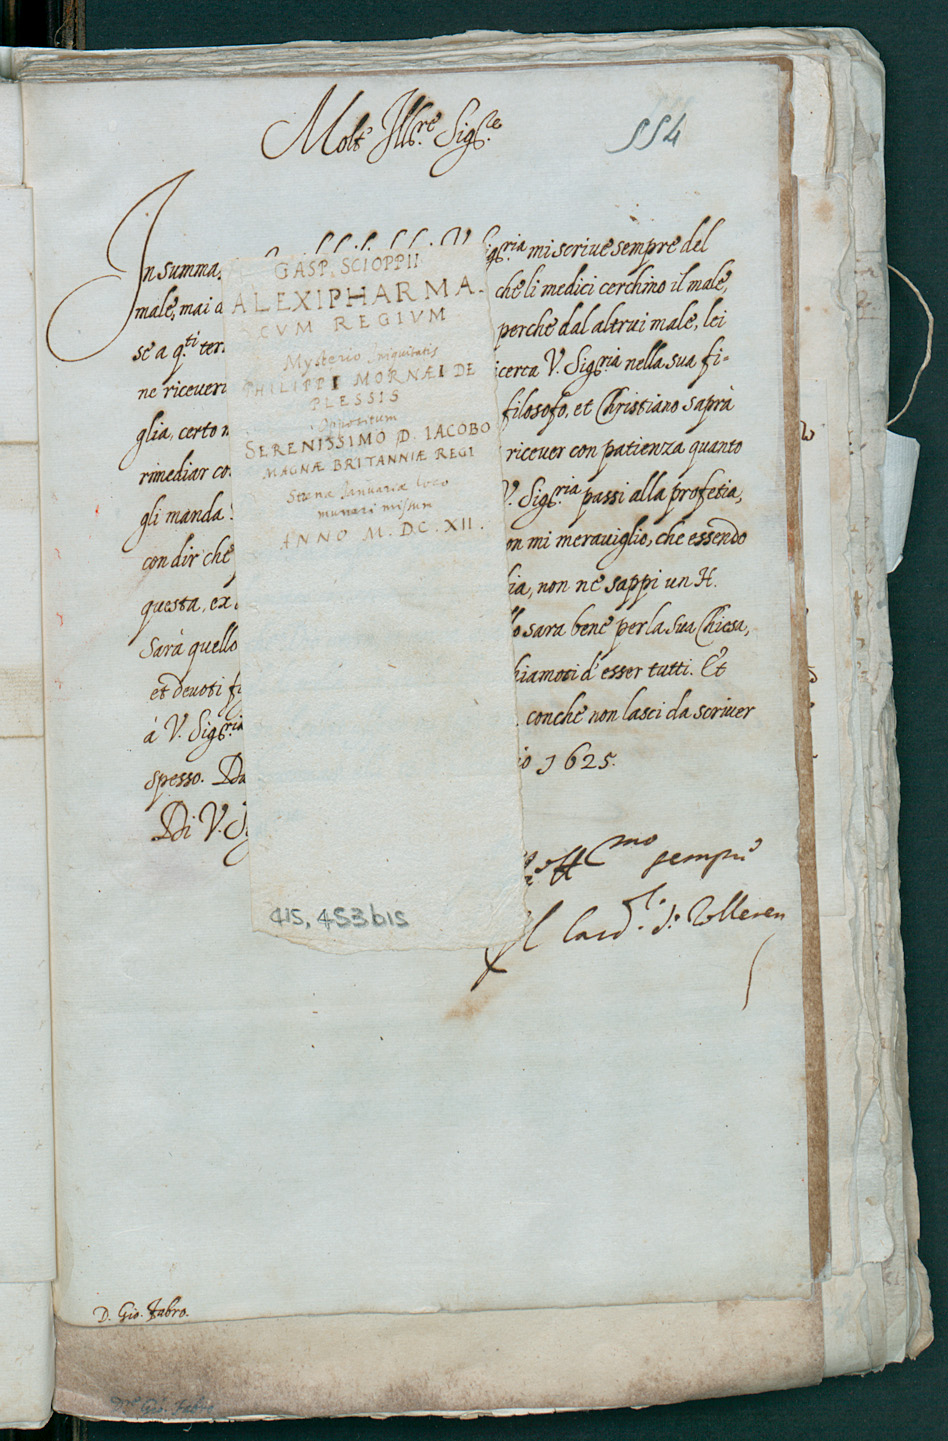 554
Molt' Ill.re Sig.re
In summa, V. Sig.ria mi scrive sempre del
male, mai che li medici cerchino il male,
se a q.ti ter perche dal altrui male, lei
ne riceveri cerca V. Sig.ria nella sua fi=
glia, certo filosofo, et Christiano saprà
rimediar co ricever con patienza quanto
gli manda V. Sig.ria passi alla profetia,
con dir che on mi meraviglio, che essendo
questa, ex ia, non ne sappi un H.
sarà quello o sara bene per la sua Chiesa,
et devoti f hiamoci d'esser tutti. Et
à V. Sig.ria conche non lasci da scriver
spesso. Da io 1625.
Di V. S
Aff.mo sempre
Il Card.l
GASP. SCIOPPII
ALEXIPHARMA-
CVM REGIVM
Mysterio iniquitatis
PHILIPPI MORNÆI DE
PLESSIS
oppositum
SERENISSIMO D. IACOBO
MAGNÆ BRITANNIÆ REGI
Strenæ Ianuariæ loco
muneri missum
ANNO M. DC. XII.
415, 453bis
D. Gio. Fabro.
Gio. Fabro